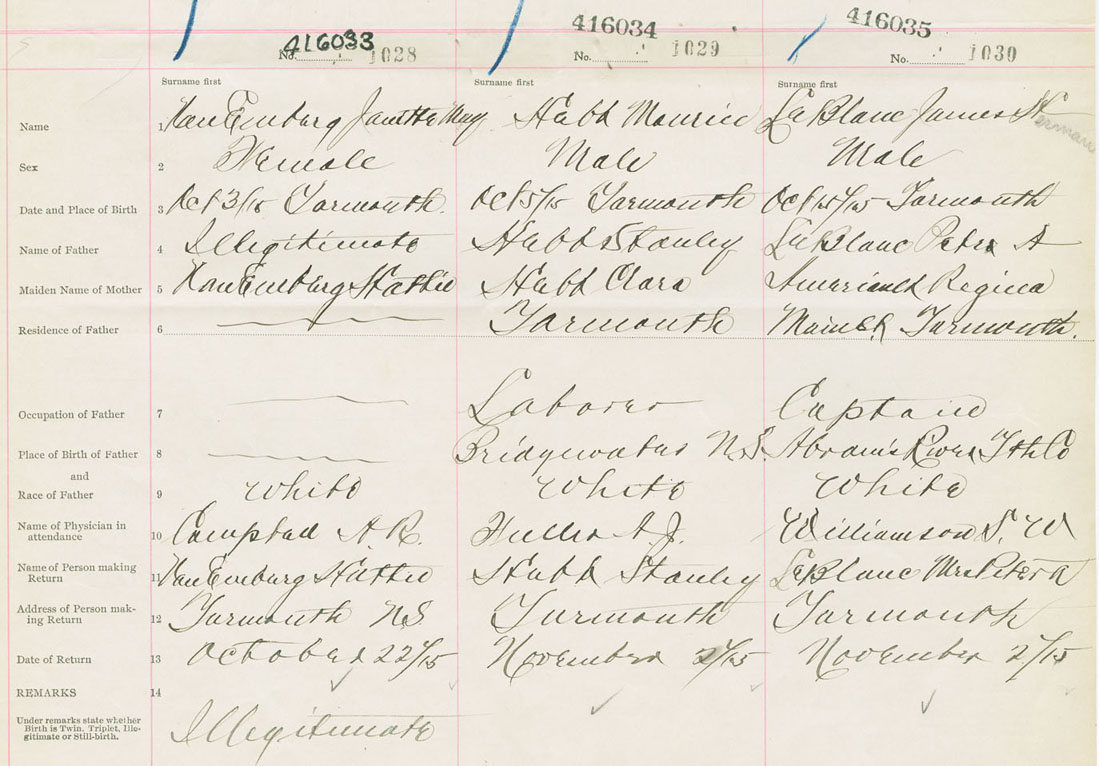 416033 416034 416035
No. 1028 No. 1029 No. 1030
Surname first Surname first Surname first
Name 1 VanEmburg Janette May Hebb Maurice LeBlanc James Herman
Sex 2 Female Male Male
Date and Place of Birth 3 Oct 3/15 Yarmouth. Oct 5/15 Yarmouth Oct 15/15 Yarmouth
Name of Father 4 Illegitimate Hebb Stanley LeBlanc Peter A
Maiden Name of Mother 5 VanEmburg Hattie Hebb Clara Regina
Residence of Father 6 Yarmouth Main St Yarmouth.
Occupation of Father 7 Laborer Captain
Place of Birth of Father 8 Bridgewater N.S. Abrams River Yth Co
and
Race of Father 9 White White White
Name of Physician in
attendance 10 Campbell A. R. Fuller A. J. Williamson S. W
Name of Person making
Return 11 VanEmburg Hattie Hebb Stanley LeBlanc Mrs Peter A
Address of Person mak-
ing Return 12 Yarmouth N.S. Yarmouth Yarmouth
Date of Return 13 October 22/15 November 2/15 November 2/15
REMARKS 14
Under remarks state whether
Birth is Twin. Triplet, Ille-
gitimate or Still-birth.
Illegitimate